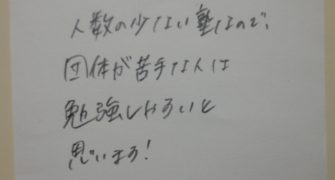 人数の少ない塾なので、
団体が苦手な人は
勉強しやすいと
思います!